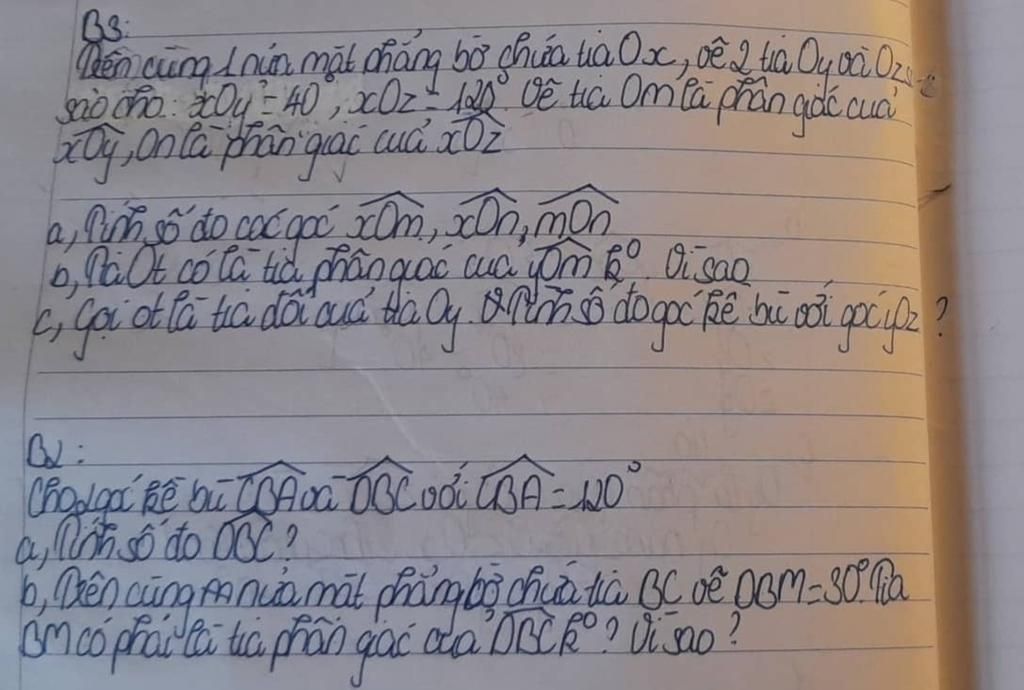 B3:
Trên cùng 1 nửa mặt phẳng bờ chứa tia Ox, vẽ 2 tia Oy và Oz
sao cho: xOy = 40°, xOz = 120°. Vẽ tia Om là phân giác của
xOy, On là phân giác của xOz
a, Tính số đo các góc xOm, xOn, mOn
b, Tia Ot có là tia phân giác của yOm k°. Vì sao
c, Gọi ot là tia đối của tia Oy. Tính số đo góc kề bù với góc yOz?
B2:
Cho 2 góc kề bù CBA và DBC với CBA = 120°
a, Tính số đo DBC?
b, Trên cùng nửa mặt phẳng bờ chứa tia BC vẽ DBM = 30°. Tia
BM có phải là tia phân giác của DBC k°? Vì sao?